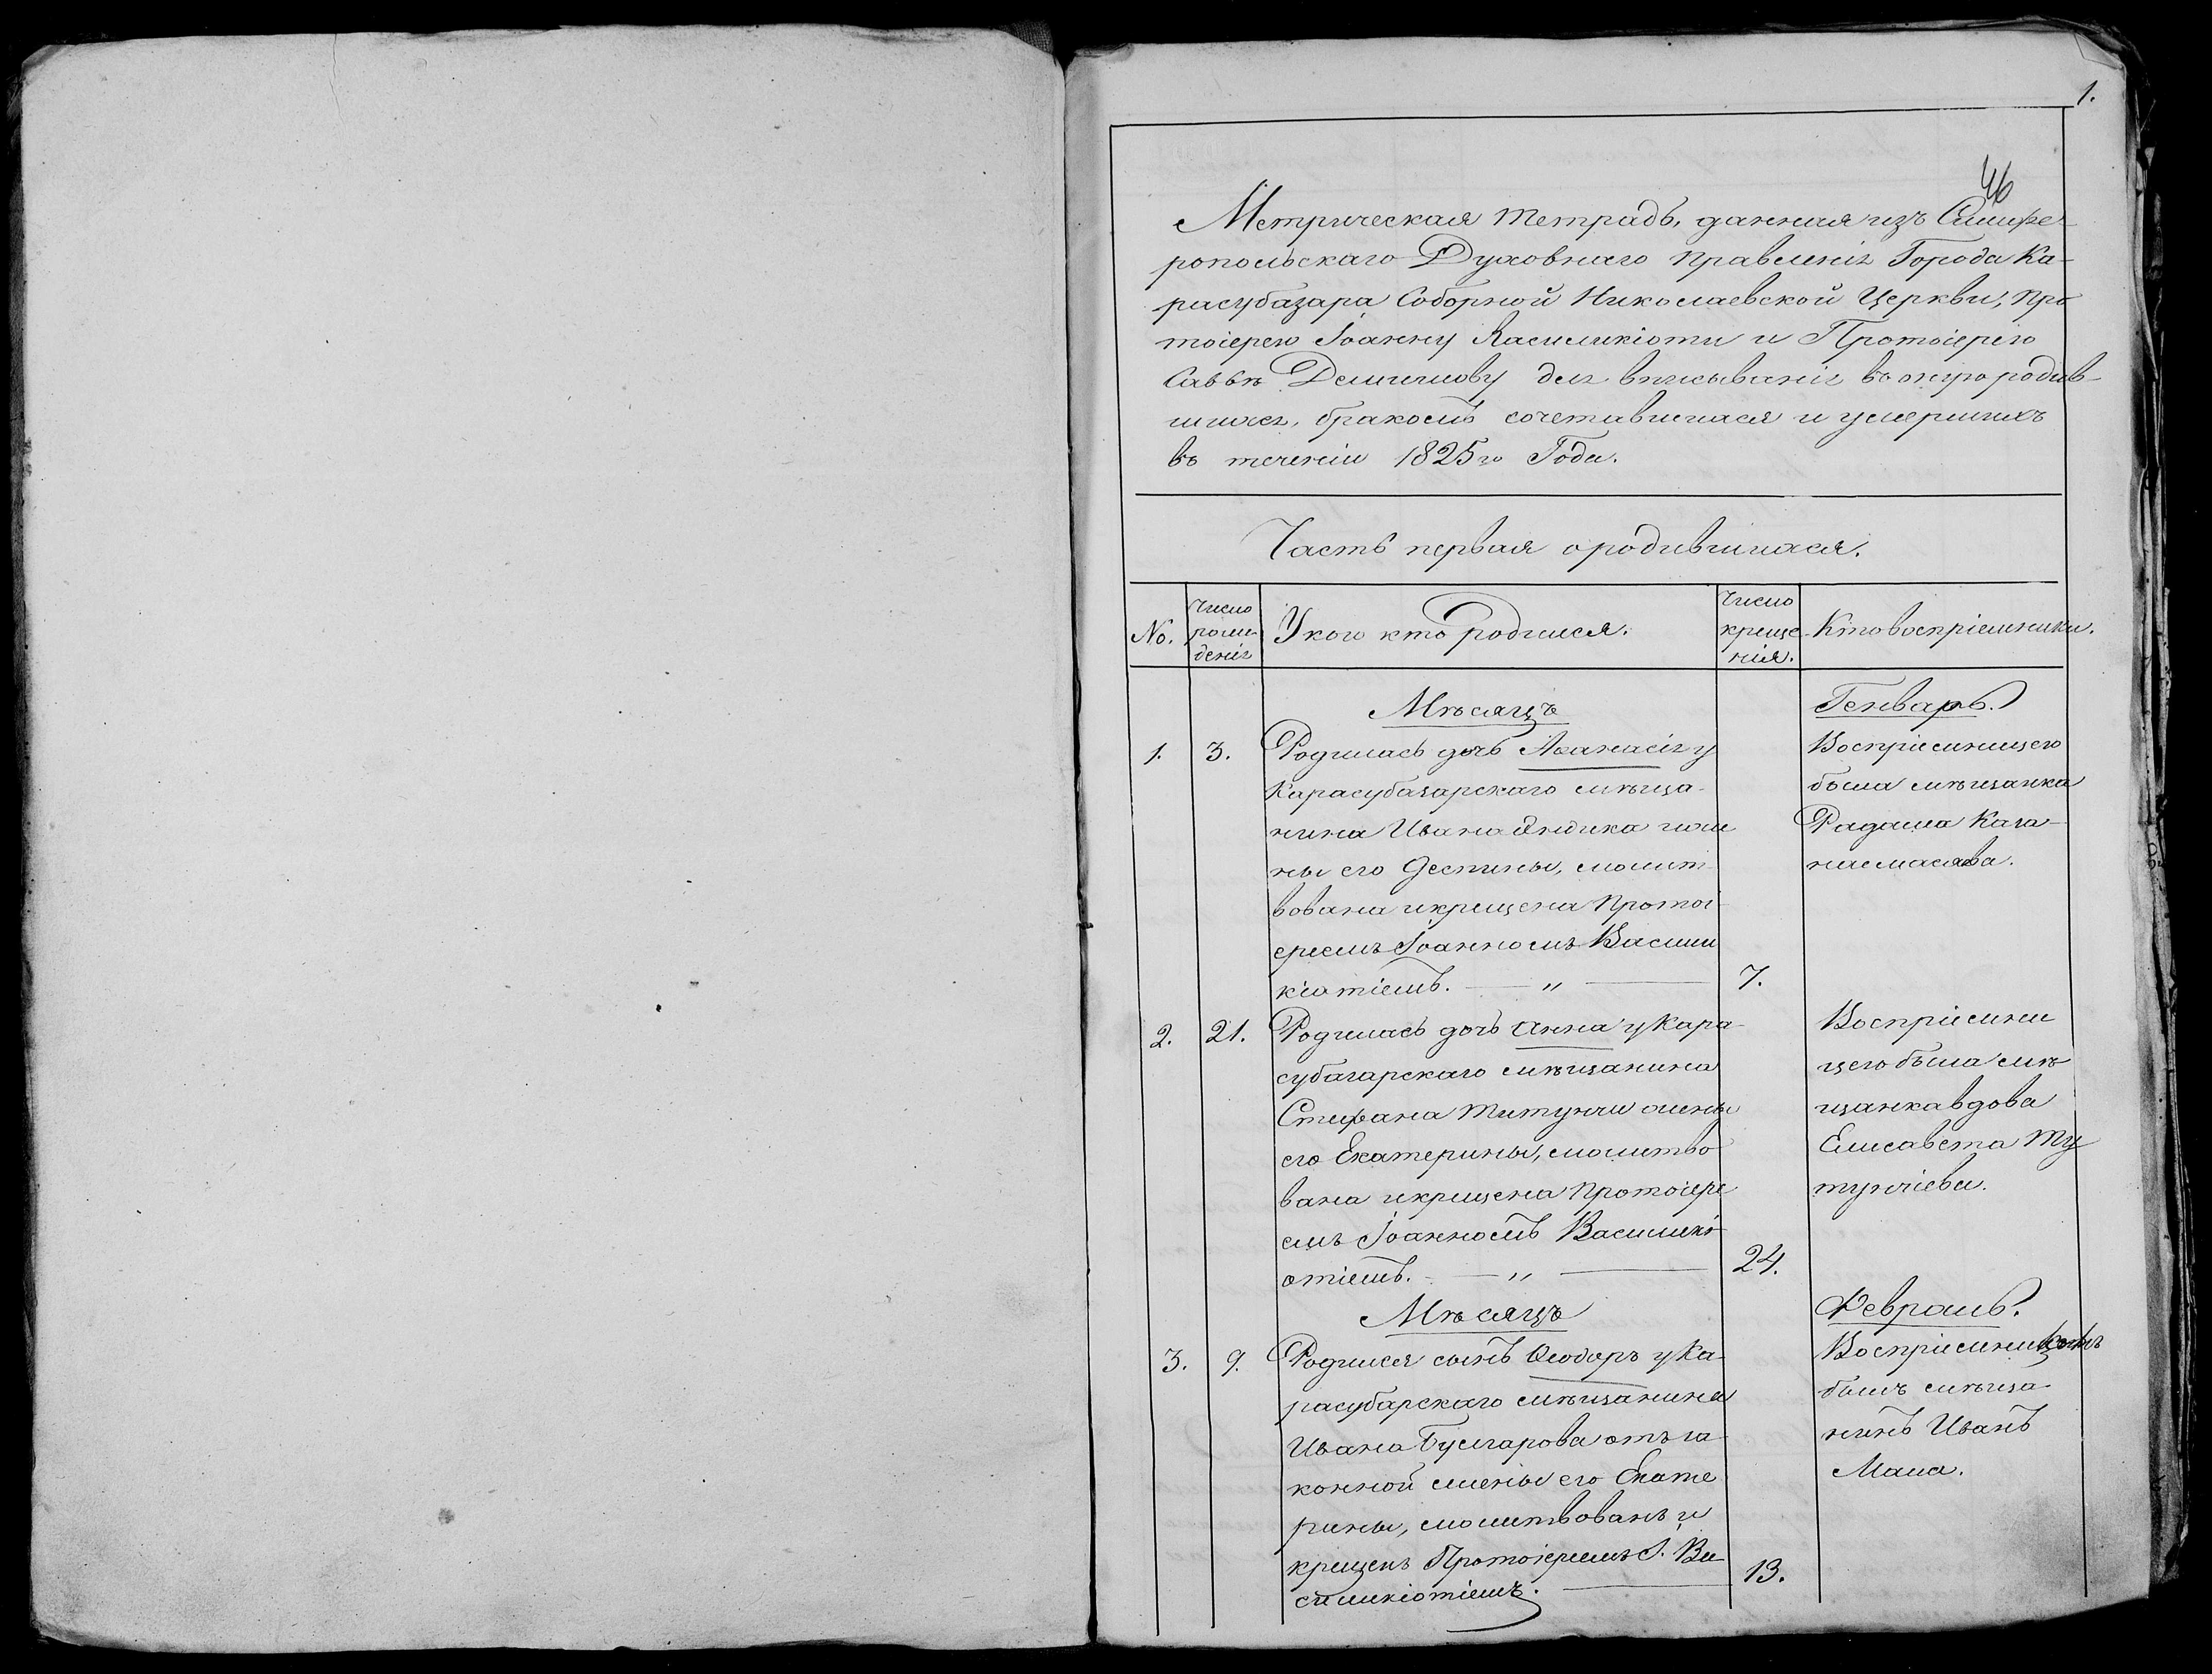 1.
46
Метрическая тетрадь, данная изъ Симфе-
ропольскаго Духовнаго Правленія Города Ка-
расубазара Соборной Николаевской Церкви, Про
тоіерею Іоанну Василикіоти и Протоіерею
Саввѣ Демичимову для вписыванія въ оную родив-
шихся, бракомъ сочетавшихся и умершихъ
въ теченіи 1825го Года.
Часть первая о родившихся.
No.
Число
рож-
денія
У кого кто родился.
Число
креще-
нія.
Кто воспріемники.
Мѣсяцъ
Генварь.
1. 3. Родилась дочь Аѳанасія у
Карасубазарскаго мѣща-
нина Ивана Яндика и же
ны его Деспины, молит-
вована и крещена Протоі-
ереемъ Іоанномъ Васили
кіотіемъ. — „ — 7.
Воспріемницею
была мѣщанка
Радама Каза-
2. 21. Родилась дочь Анна у Кара-
субазарскаго мѣщанина
Стефана Титунжи жены
его Екатерины, молитво
вана и крещена Протоіере
емъ Іоанномъ Василикі-
отіемъ. — „ — 24.
Воспріемни
цею была мѣ
щанка вдова
Елисавета Ту
тунчіева.
Мѣсяцъ
Февраль.
3. 9. Родился сынъ Ѳеодоръ у Ка-
расубарскаго мѣщанина
Ивана Булгарова отъ за
конной жены его Екате
рины, молитвованъ и
крещенъ Протоіереемъ І. Ва
силикіотіемъ. — 13.
Воспріемникомъ
былъ мѣща
нинъ Иванъ
Мама.